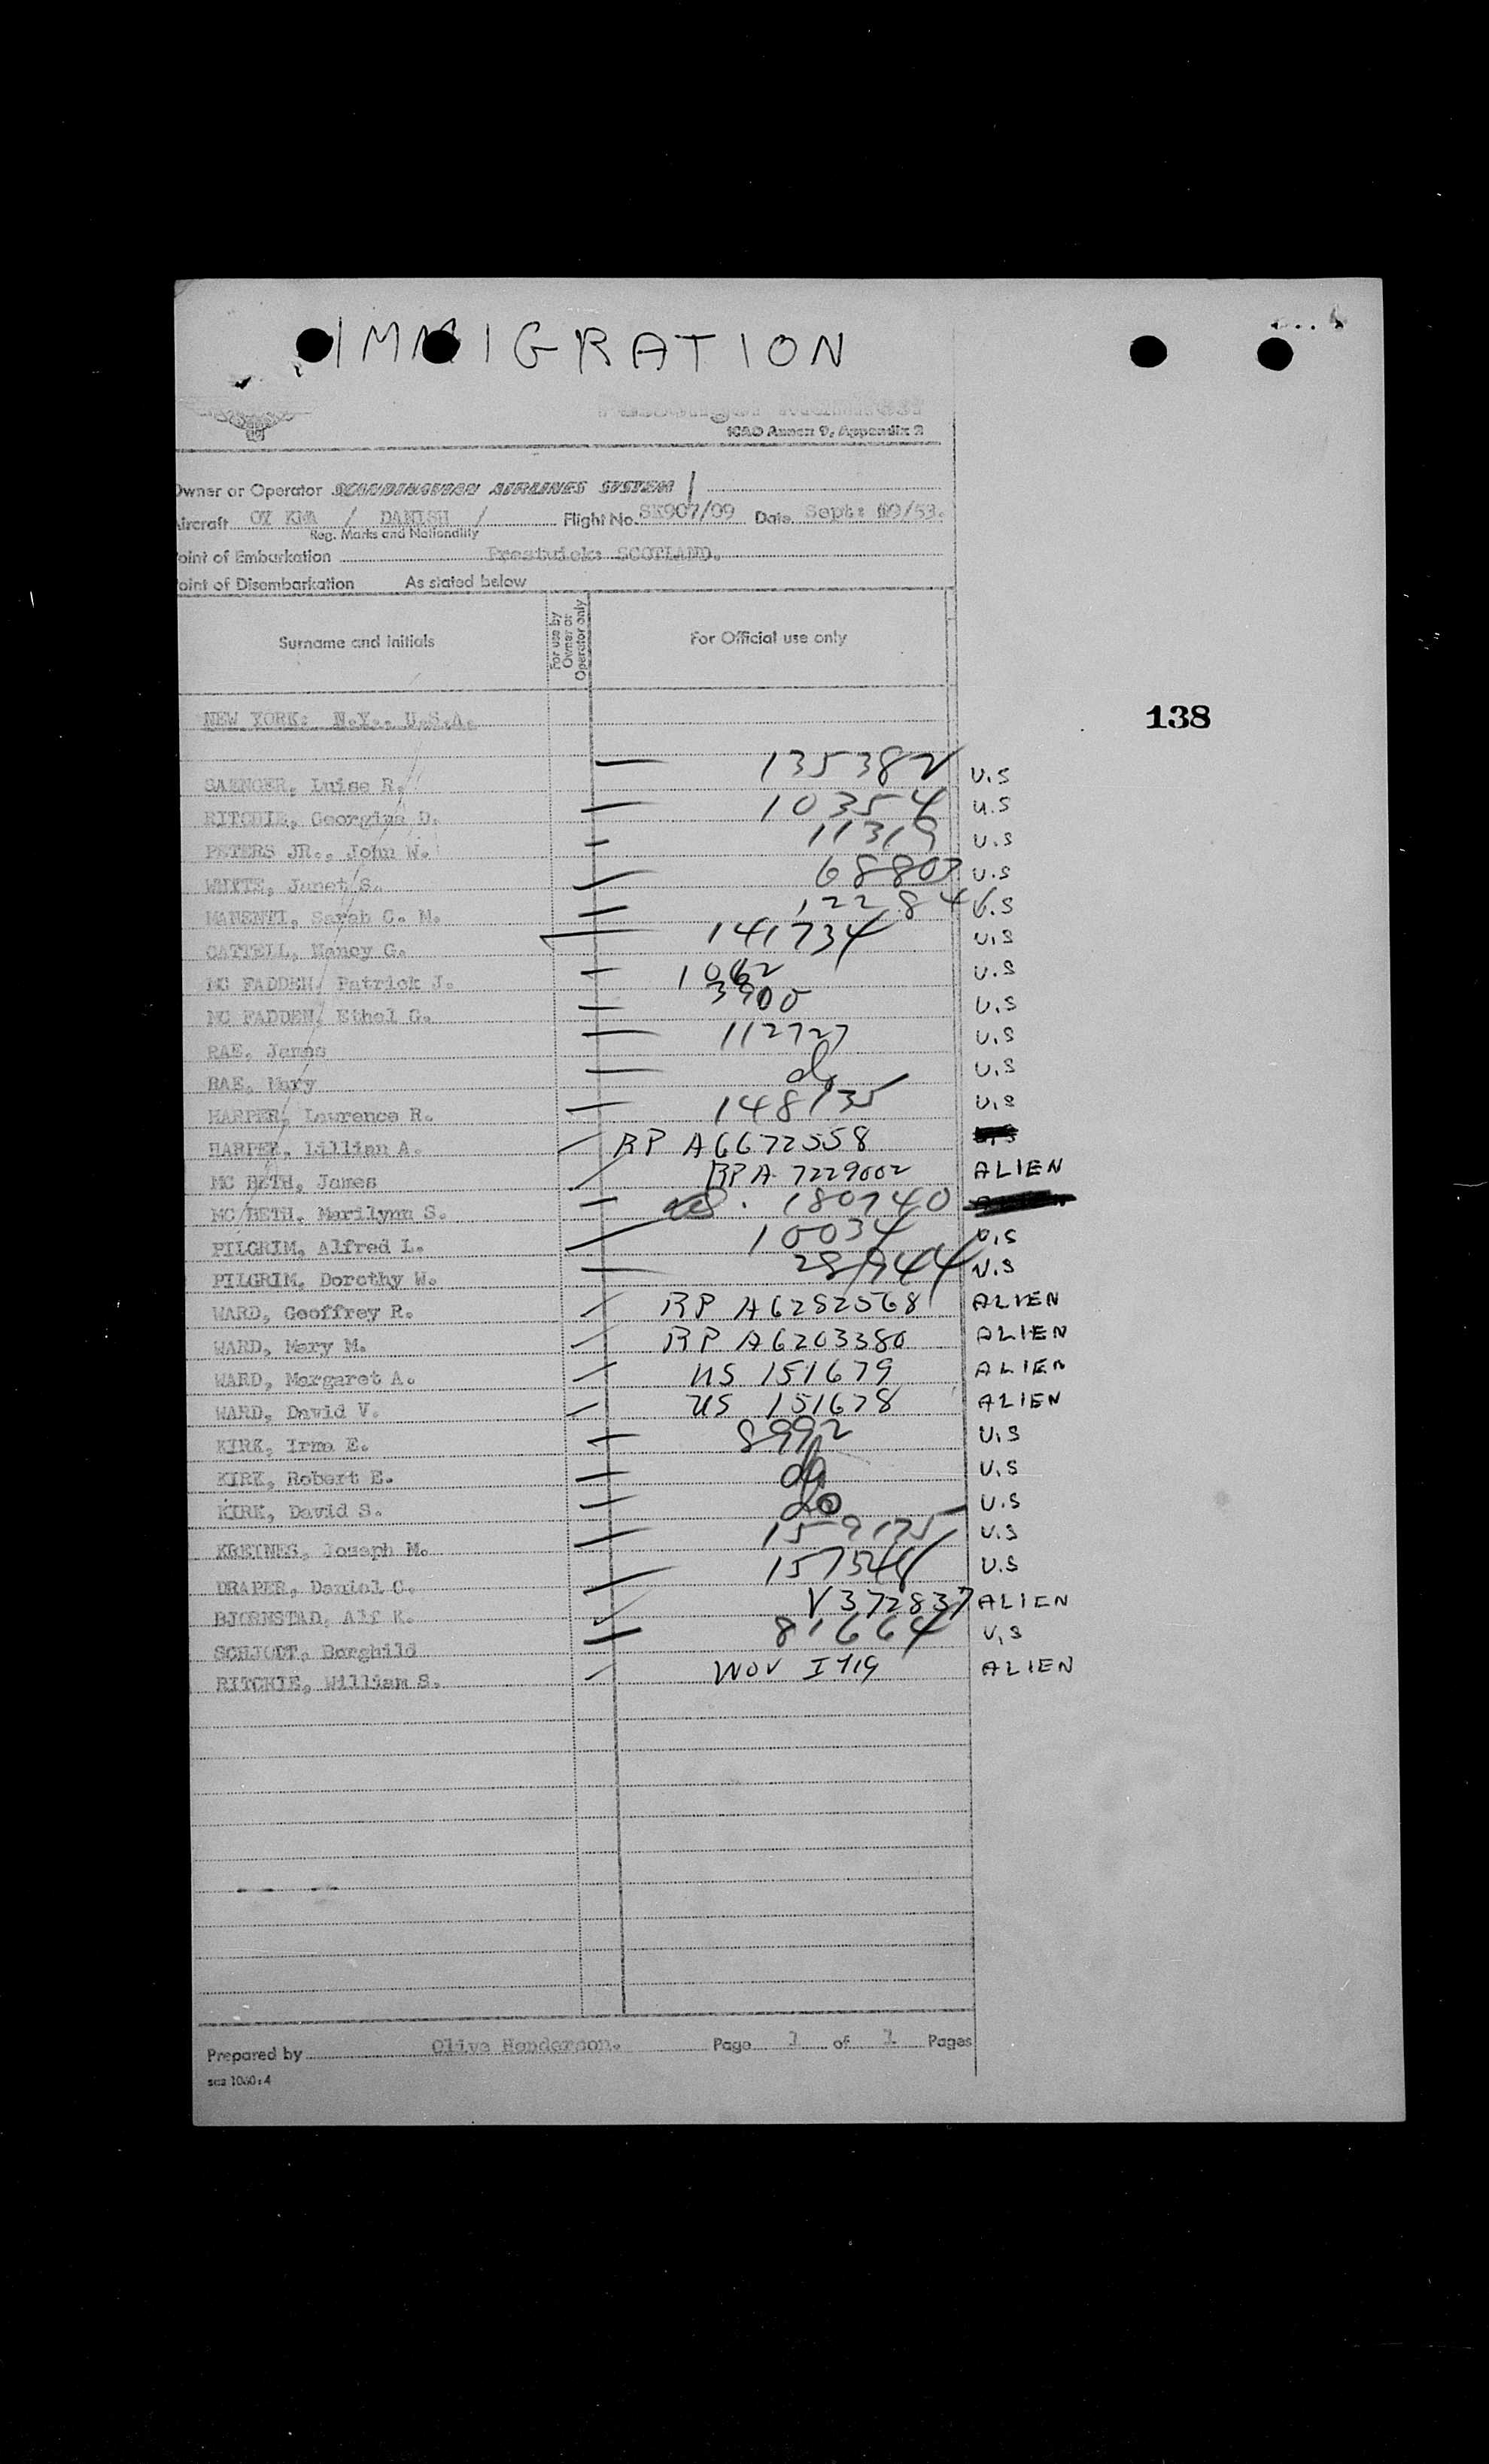 IMMIGRATION
Passenger Manifest
ICAO Annex 9, Appendix 2
Owner or Operator SCANDINAVIAN AIRLINES SYSTEM
Aircraft OY KMA / DANISH / Flight No. SK907/09 Date Sept: /53.
Reg. Marks and Nationality
Point of Embarkation Prestwick: SCOTLAND.
Point of Disembarkation As stated below
Surname and initials For use by Owner or Operator only For Official use only
NEW YORK: N.Y.. U.S.A.
138
SAENGER, Luise R. 135382 U.S
RITCHIE, Georgina D. 10354 U.S
PETERS JR., John W. 11319 U.S
WHITE, Janet S. 68803 U.S
MANENTI, Sarah C. M. 12284 U.S
CATTELL, Nancy G. 141734 U.S
MC FADDEN, Patrick J. 1062 U.S
MC FADDEN, Ethel G. 3900 U.S
RAE, James 112727 U.S
RAE, Mary do U.S
HARPER, Lawrence R. 148135 U.S
HARPER, Lillian A. RP A6672558
MC BETH, James RPA 7229002 ALIEN
MC BETH, Marilynn S. 180740
PILGRIM, Alfred L. 10034 U.S
PILGRIM, Dorothy W. U.S
WARD, Geoffrey R. RP A6282568 ALIEN
WARD, Mary M. RP A6203380 ALIEN
WARD, Margaret A. US 151679 ALIEN
WARD, David V. US 151678 ALIEN
KIRK, Irma E. 8992 U.S
KIRK, Robert E. do U.S
KIRK, David S. do U.S
KREINES, Joseph M. 159175 U.S
DRAPER, Daniel C. U.S
BJORNSTAD, Alf K. V372837 ALIEN
SCHJODT, Borghild 81664 U.S
RITCHIE, William S. ALIEN
Prepared by Olive Henderson. Page 1 of 1 Pages
sas 1060:4